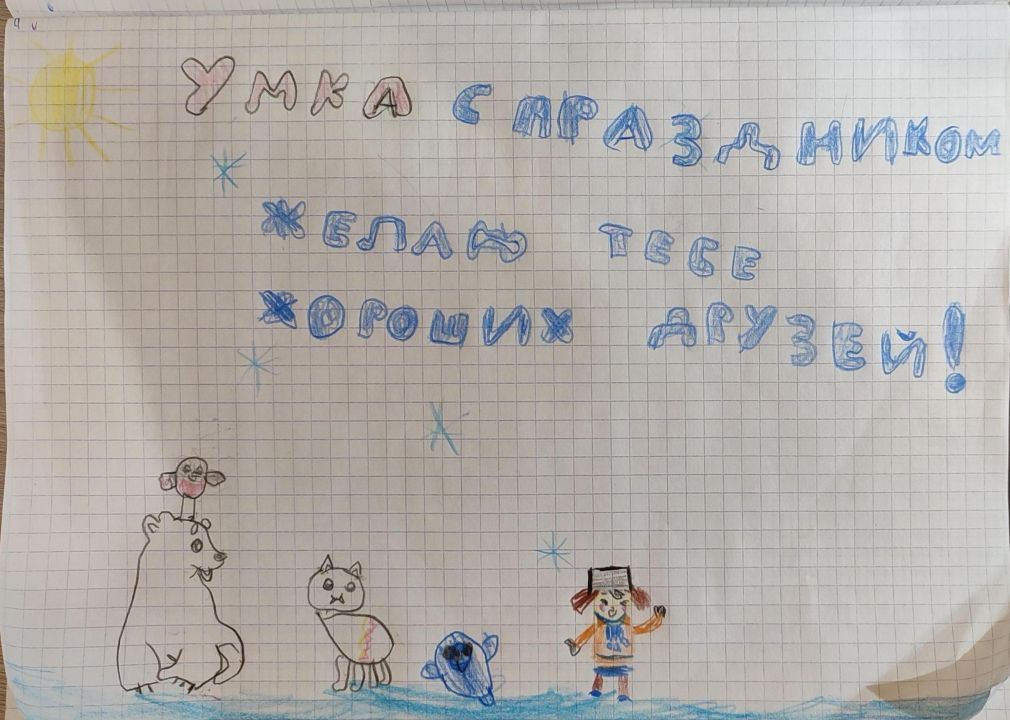 УМКА С ПРАЗДНИКОМ
ЖЕЛАЮ ТЕБЕ
ХОРОШИХ ДРУЗЕЙ!